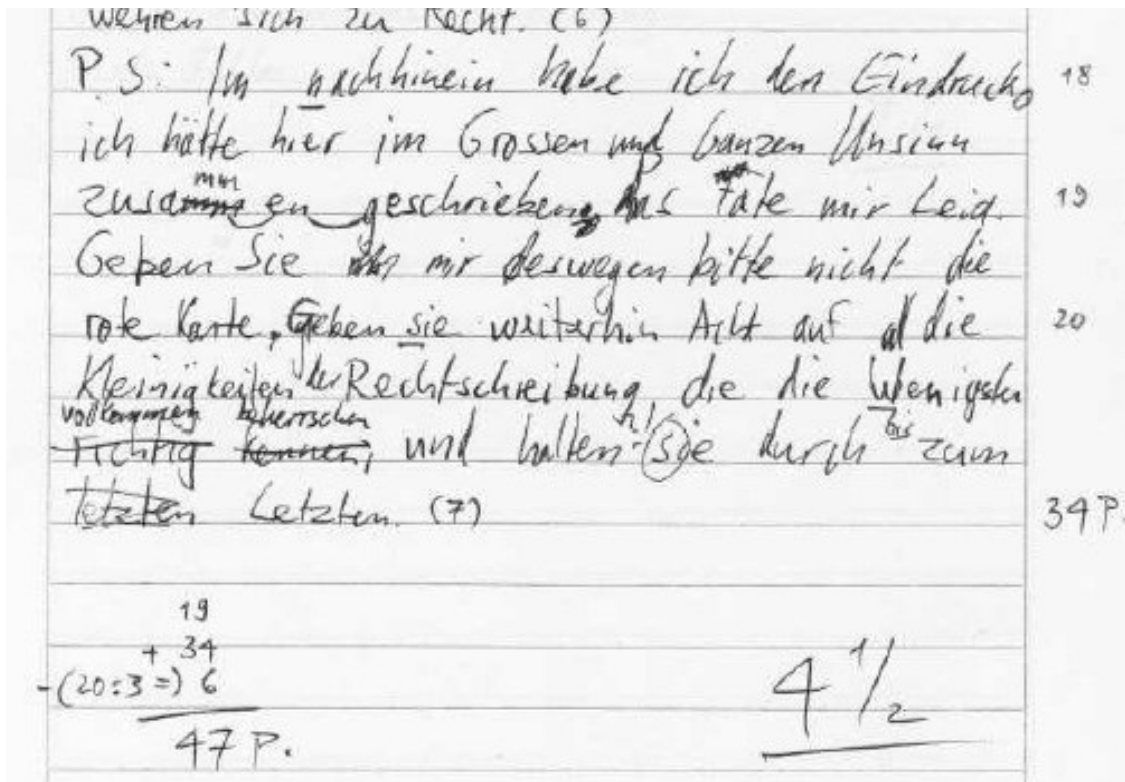 wehren sich zu Recht. (6)
P.S: Im nachhinein habe ich den Eindruck, 18
ich hätte hier im Grossen und Ganzen Unsinn
zusammen geschrieben, das täte mir Leid. 19
Geben Sie mir deswegen bitte nicht die
rote Karte, Geben sie weiterhin Acht auf all die 20
Kleinigkeiten der Rechtschreibung, die die Wenigsten
vollkommen beherrschen
richtig kennen, und halten sie durch bis zum
letzten Letzten. (7) 34 P.
19
+ 34
-(20:3=) 6
47 P.
4 1/2